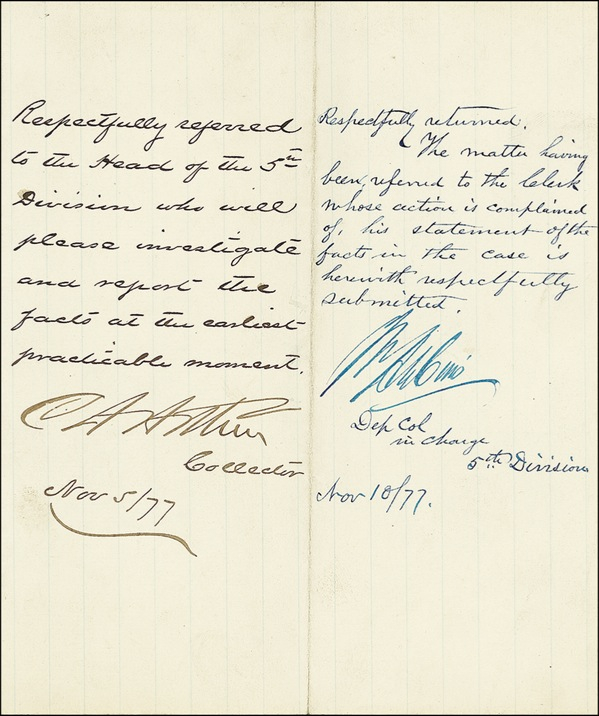 Respectfully referred
to the Head of the 5th
Division who will
please investigate
and report the
facts at the earliest
practicable moment.
C A Arthur
Collector
Nov 5/77
Respectfully returned.
The matter having
been, referred to the Clerk
whose action is complained
of, his statement of the
facts in the case is
herewith respectfully
submitted.
Dep Col
in charge
5th Division
Nov 10/77.